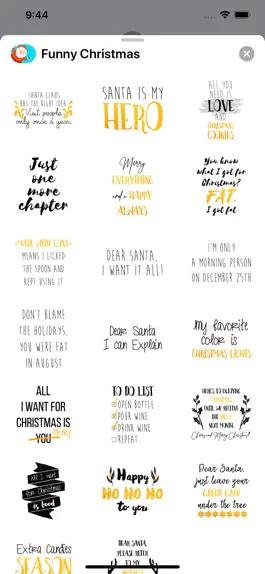 9:44
Funny Christmas
SANTA CLAUS
HAS THE RIGHT IDEA
Visit people
only once a year
SANTA IS MY
HERO
ALL YOU
NEED IS
LOVE
AND
CHRISTMAS
COOKIES
Just
one
more
chapter
Merry
EVERYTHING
and a HAPPY
ALWAYS
You know
what I got for
Christmas?
FAT.
I got fat
MADE WITH LOVE
MEANS I LICKED
THE SPOON AND
KEPT USING IT
DEAR SANTA,
I WANT IT ALL!
I'M ONLY
A MORNING PERSON
ON DECEMBER 25TH
DON'T BLAME
THE HOLIDAYS,
YOU WERE FAT
IN AUGUST
Dear Santa
I can Explain
My favorite
color is
CHRISTMAS LIGHTS
ALL
I WANT FOR
CHRISTMAS IS
YOU
TO DO LIST
OPEN BOTTLE
POUR WINE
DRINK WINE
REPEAT
HERE'S TO ENJOYING
CHRISTMAS
UNTIL WE RECEIVE
THE BILLS
NEXT MONTH
Cheers and Merry Christmas!
ALL I WANT
for Christmas
is food
Happy
HO HO HO
to you
Dear Santa,
just leave your
CREDIT CARD
under the tree
Extra Candies
SEASON
DEAR SANTA,
PLEASE REFER
TO MY